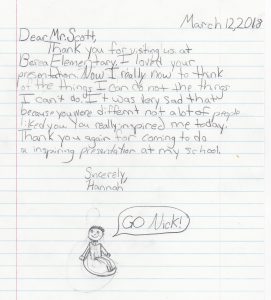 March 12, 2018
Dear Mr. Scott,
Thank you for visting us at
Berea Elementary. I loved your
presentation. Now I really now to think
of the things I can do not the things
I can't do. It was very sad that
because you were differnt not alot of people
liked you. You really inspired me today.
Thank you again for coming to do
a inspuring presentation at my school.
Sincerely,
Hannah
GO Nick!